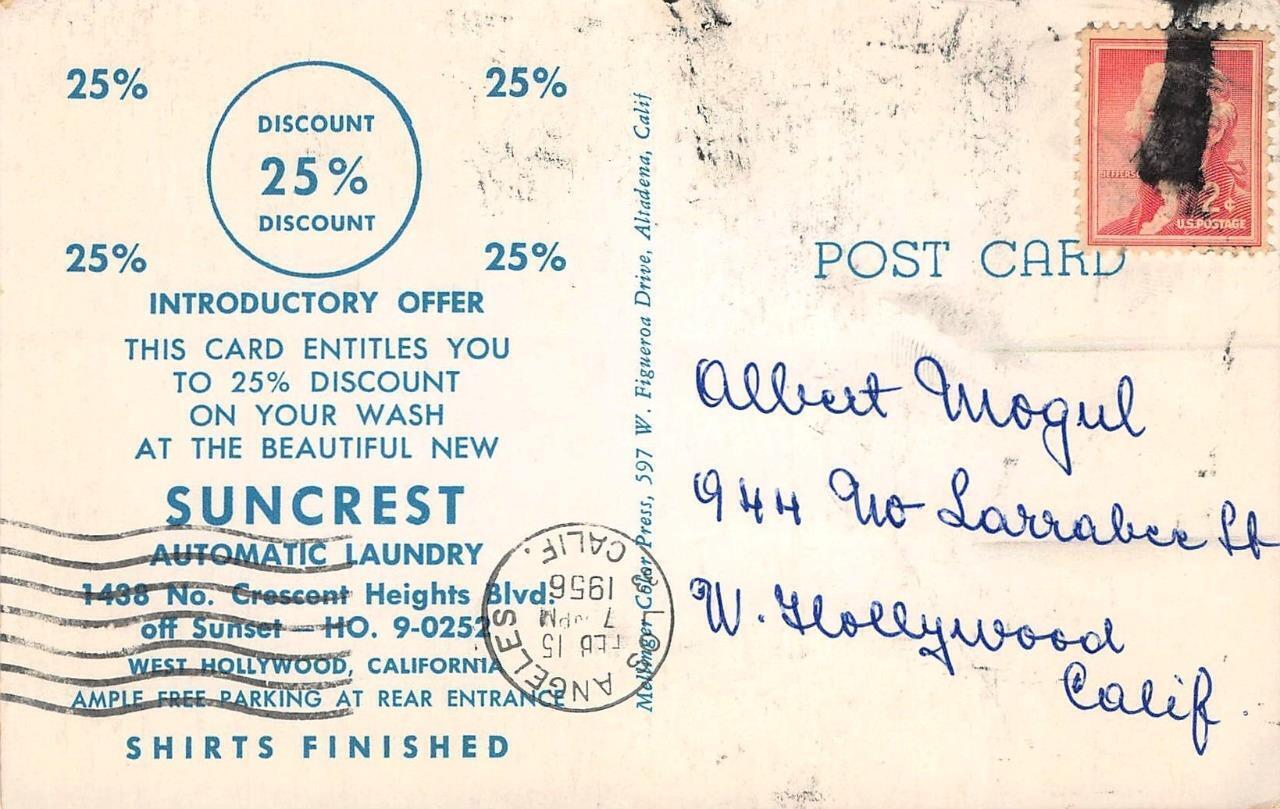 25% 25%
DISCOUNT
25%
DISCOUNT
25% 25%
INTRODUCTORY OFFER
THIS CARD ENTITLES YOU
TO 25% DISCOUNT
ON YOUR WASH
AT THE BEAUTIFUL NEW
SUNCREST
AUTOMATIC LAUNDRY
1438 No. Crescent Heights Blvd.
off Sunset — HO. 9-0252
WEST HOLLYWOOD, CALIFORNIA
AMPLE FREE PARKING AT REAR ENTRANCE
SHIRTS FINISHED
LOS ANGELES
CALIF.
FEB 15
7 PM
1956
Mellinger Color Press, 597 W. Figueroa Drive, Altadena, Calif
2¢
U.S. POSTAGE
POST CARD
Albert Mogul
944 No Larrabee St
W. Hollywood
Calif.